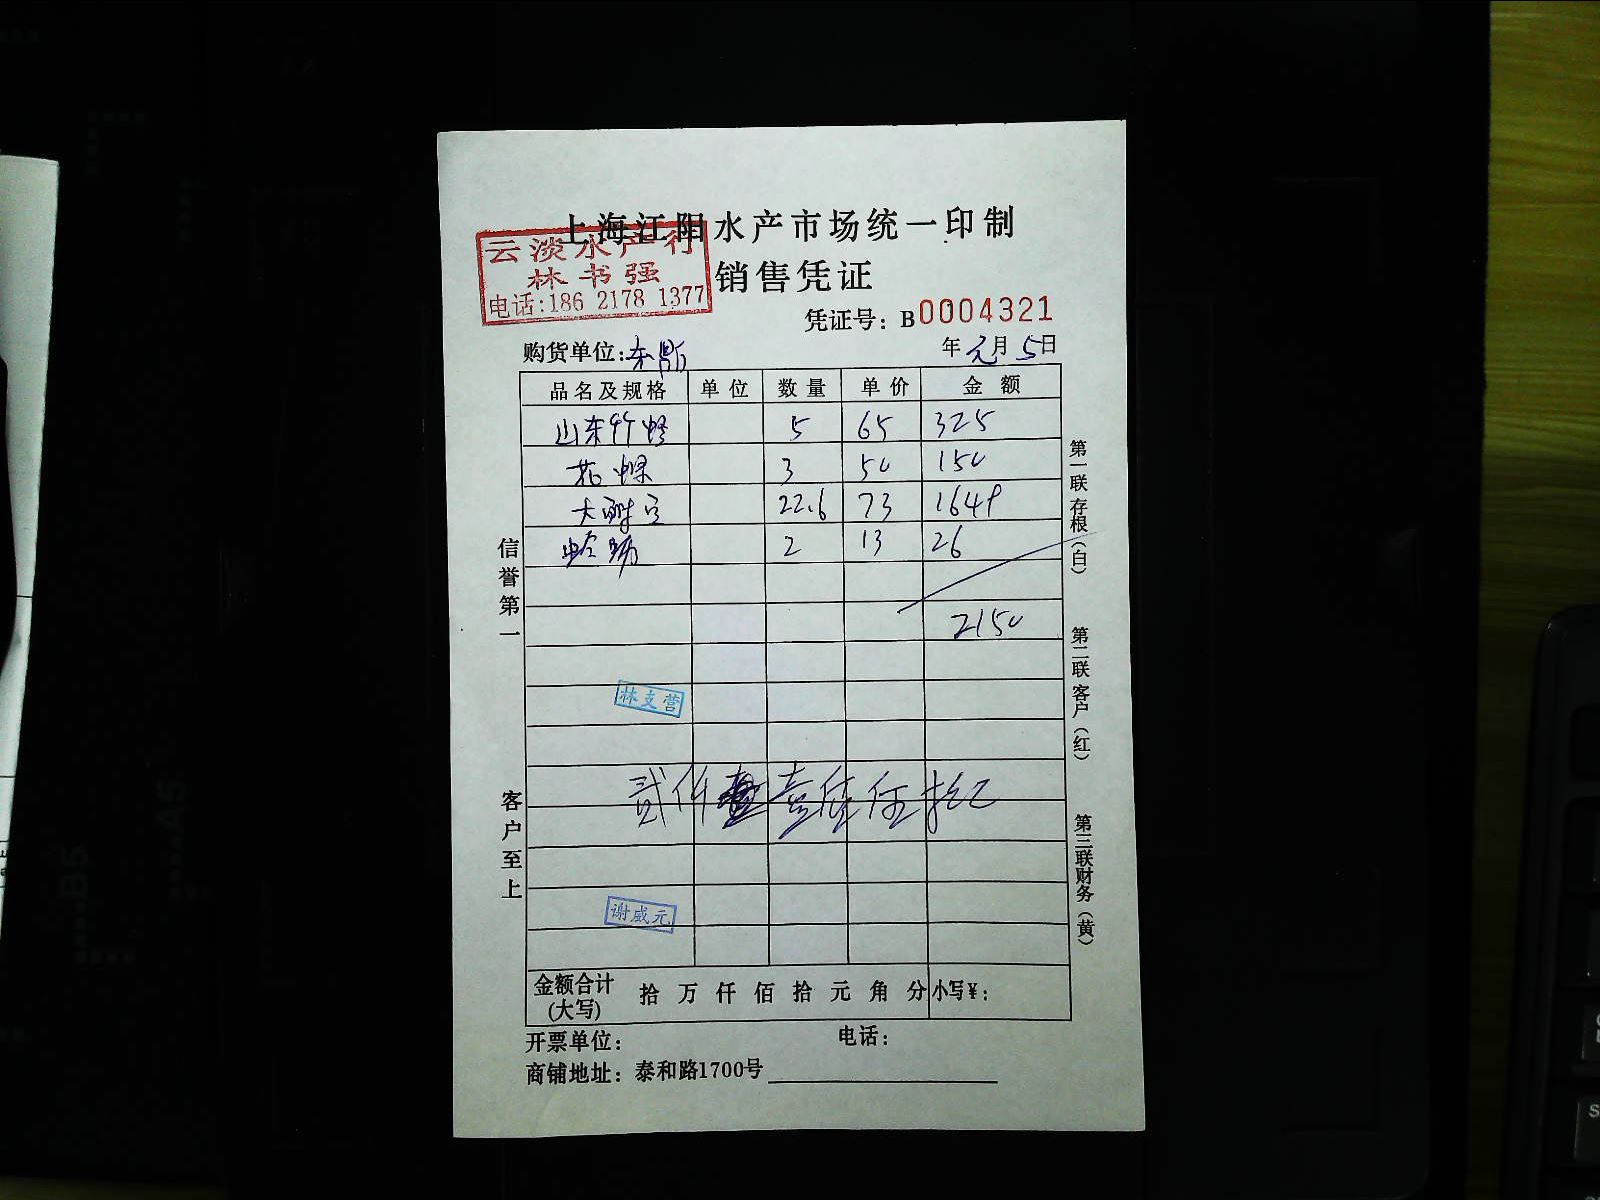 上海江阳水产市场统一印制
云淡水产行
林书强
电话:186 2178 1377
销售凭证
凭证号: B0004321
购货单位:
年元月5日
品名及规格 单位 数量 单价 金额
山东竹蛏 5 65 325
花螺 3 50 150
22.6 73 1649
蛤蛎 2 13 26
2150
林支营
贰仟 壹佰伍拾
谢威元
金额合计(大写) 拾 万 仟 佰 拾 元 角 分 小写¥:
开票单位: 电话:
商铺地址: 泰和路1700号
信誉第一
客户至上
第一联存根(白)
第二联客户(红)
第三联财务(黄)